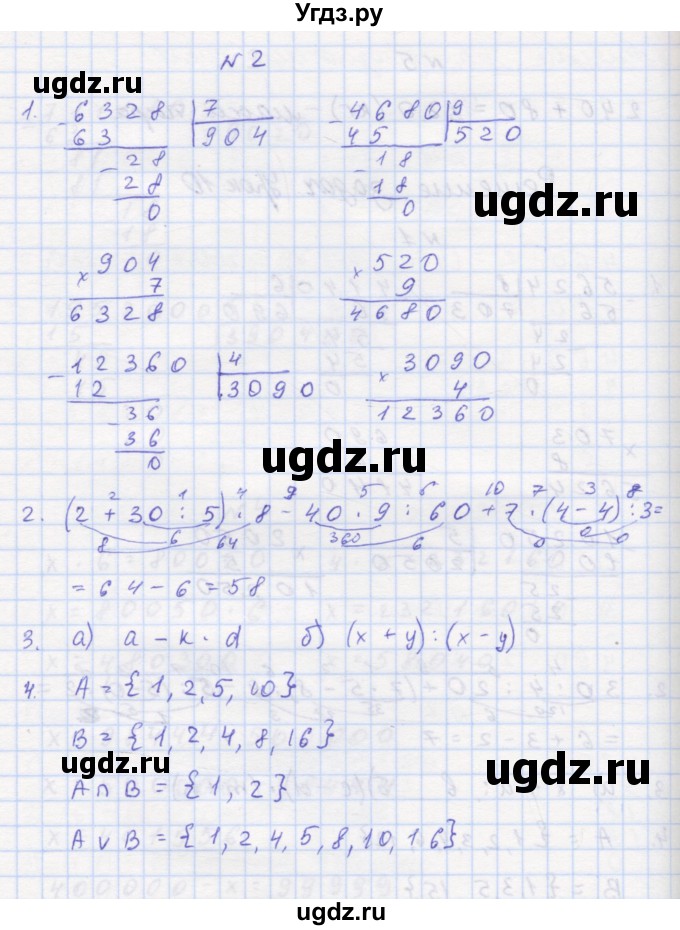 Угдз.ру
N 2
ugdz.ru
1. 6328 | 7
63 904
28
28
0
4680 | 9
45 520
18
18
0
ugdz.ru
904
× 7
6328
520
× 9
4680
12360 | 4
12 3090
36
36
0
3090
× 4
12360
ugdz.ru
2 1 4 9 5 6 10 7 3 8
2. (2 + 30 : 5) · 8 - 40 · 9 : 60 + 7 · (4 - 4) : 3 =
8 6 64 360 6 0 0 0
= 64 - 6 = 58
3. а) a - k · d б) (x + y) : (x - y)
4. A = {1, 2, 5, 10}
B = {1, 2, 4, 8, 16}
ugdz.ru
A ∩ B = {1, 2}
ugdz.ru
A ∨ B = {1, 2, 4, 5, 8, 10, 16}
ugdz.ru